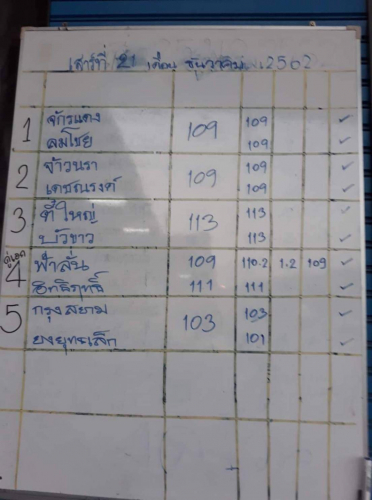 เสาร์ที่ 21 เดือน ธันวาคม 2562
1 จักรแดง 109 109 ✓
ลมโชย 109 ✓
2 จ้าวนรา 109 109 ✓
เดชณรงค์ 109 ✓
3 ตี๋ใหญ่ 113 113 ✓
บัวขาว 113 ✓
คู่เอก
4 ฟ้าลั่น 109 110.2 1.2 109 ✓
อิทธิฤทธิ์ 111 111 ✓
5 กรุงสยาม 103 103 ✓
ยงยุทธเล็ก 101 ✓